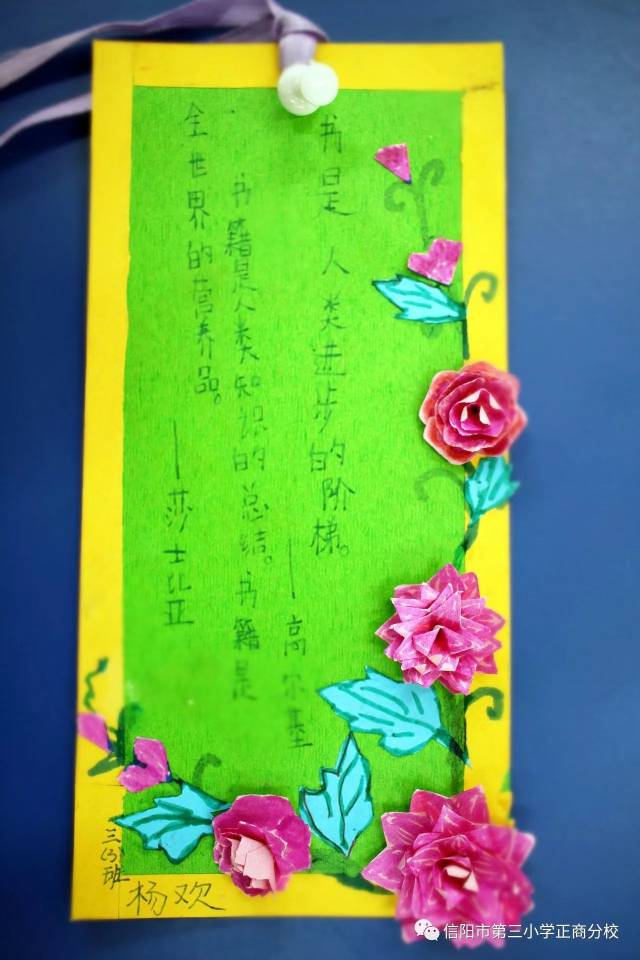 书是人类进步的阶梯。
——高尔基
书籍是人类知识的总结。书籍是
全世界的营养品。
——莎士比亚
三(3)班
杨欢
信阳市第三小学正商分校